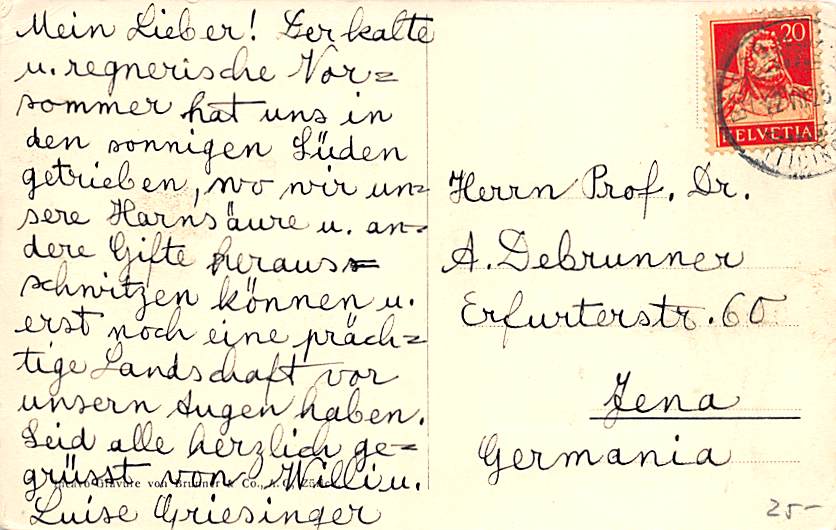 Mein Lieber! Der kalte
u. regnerische Vor=
sommer hat uns in
den sonnigen Süden
getrieben, wo wir un=
sere Harnsäure u. an=
dere Gifte heraus=
schwitzen können u.
erst noch eine präch=
tige Landschaft vor
unsern Augen haben.
Seid alle herzlich ge=
grüsst von Willi u.
Luise Griesinger
Gravure von Brunner & Co., A. G., Zürich
20
HELVETIA
Herrn Prof. Dr.
A. Debrunner
Erfurterstr. 60
Jena
Germania
25-